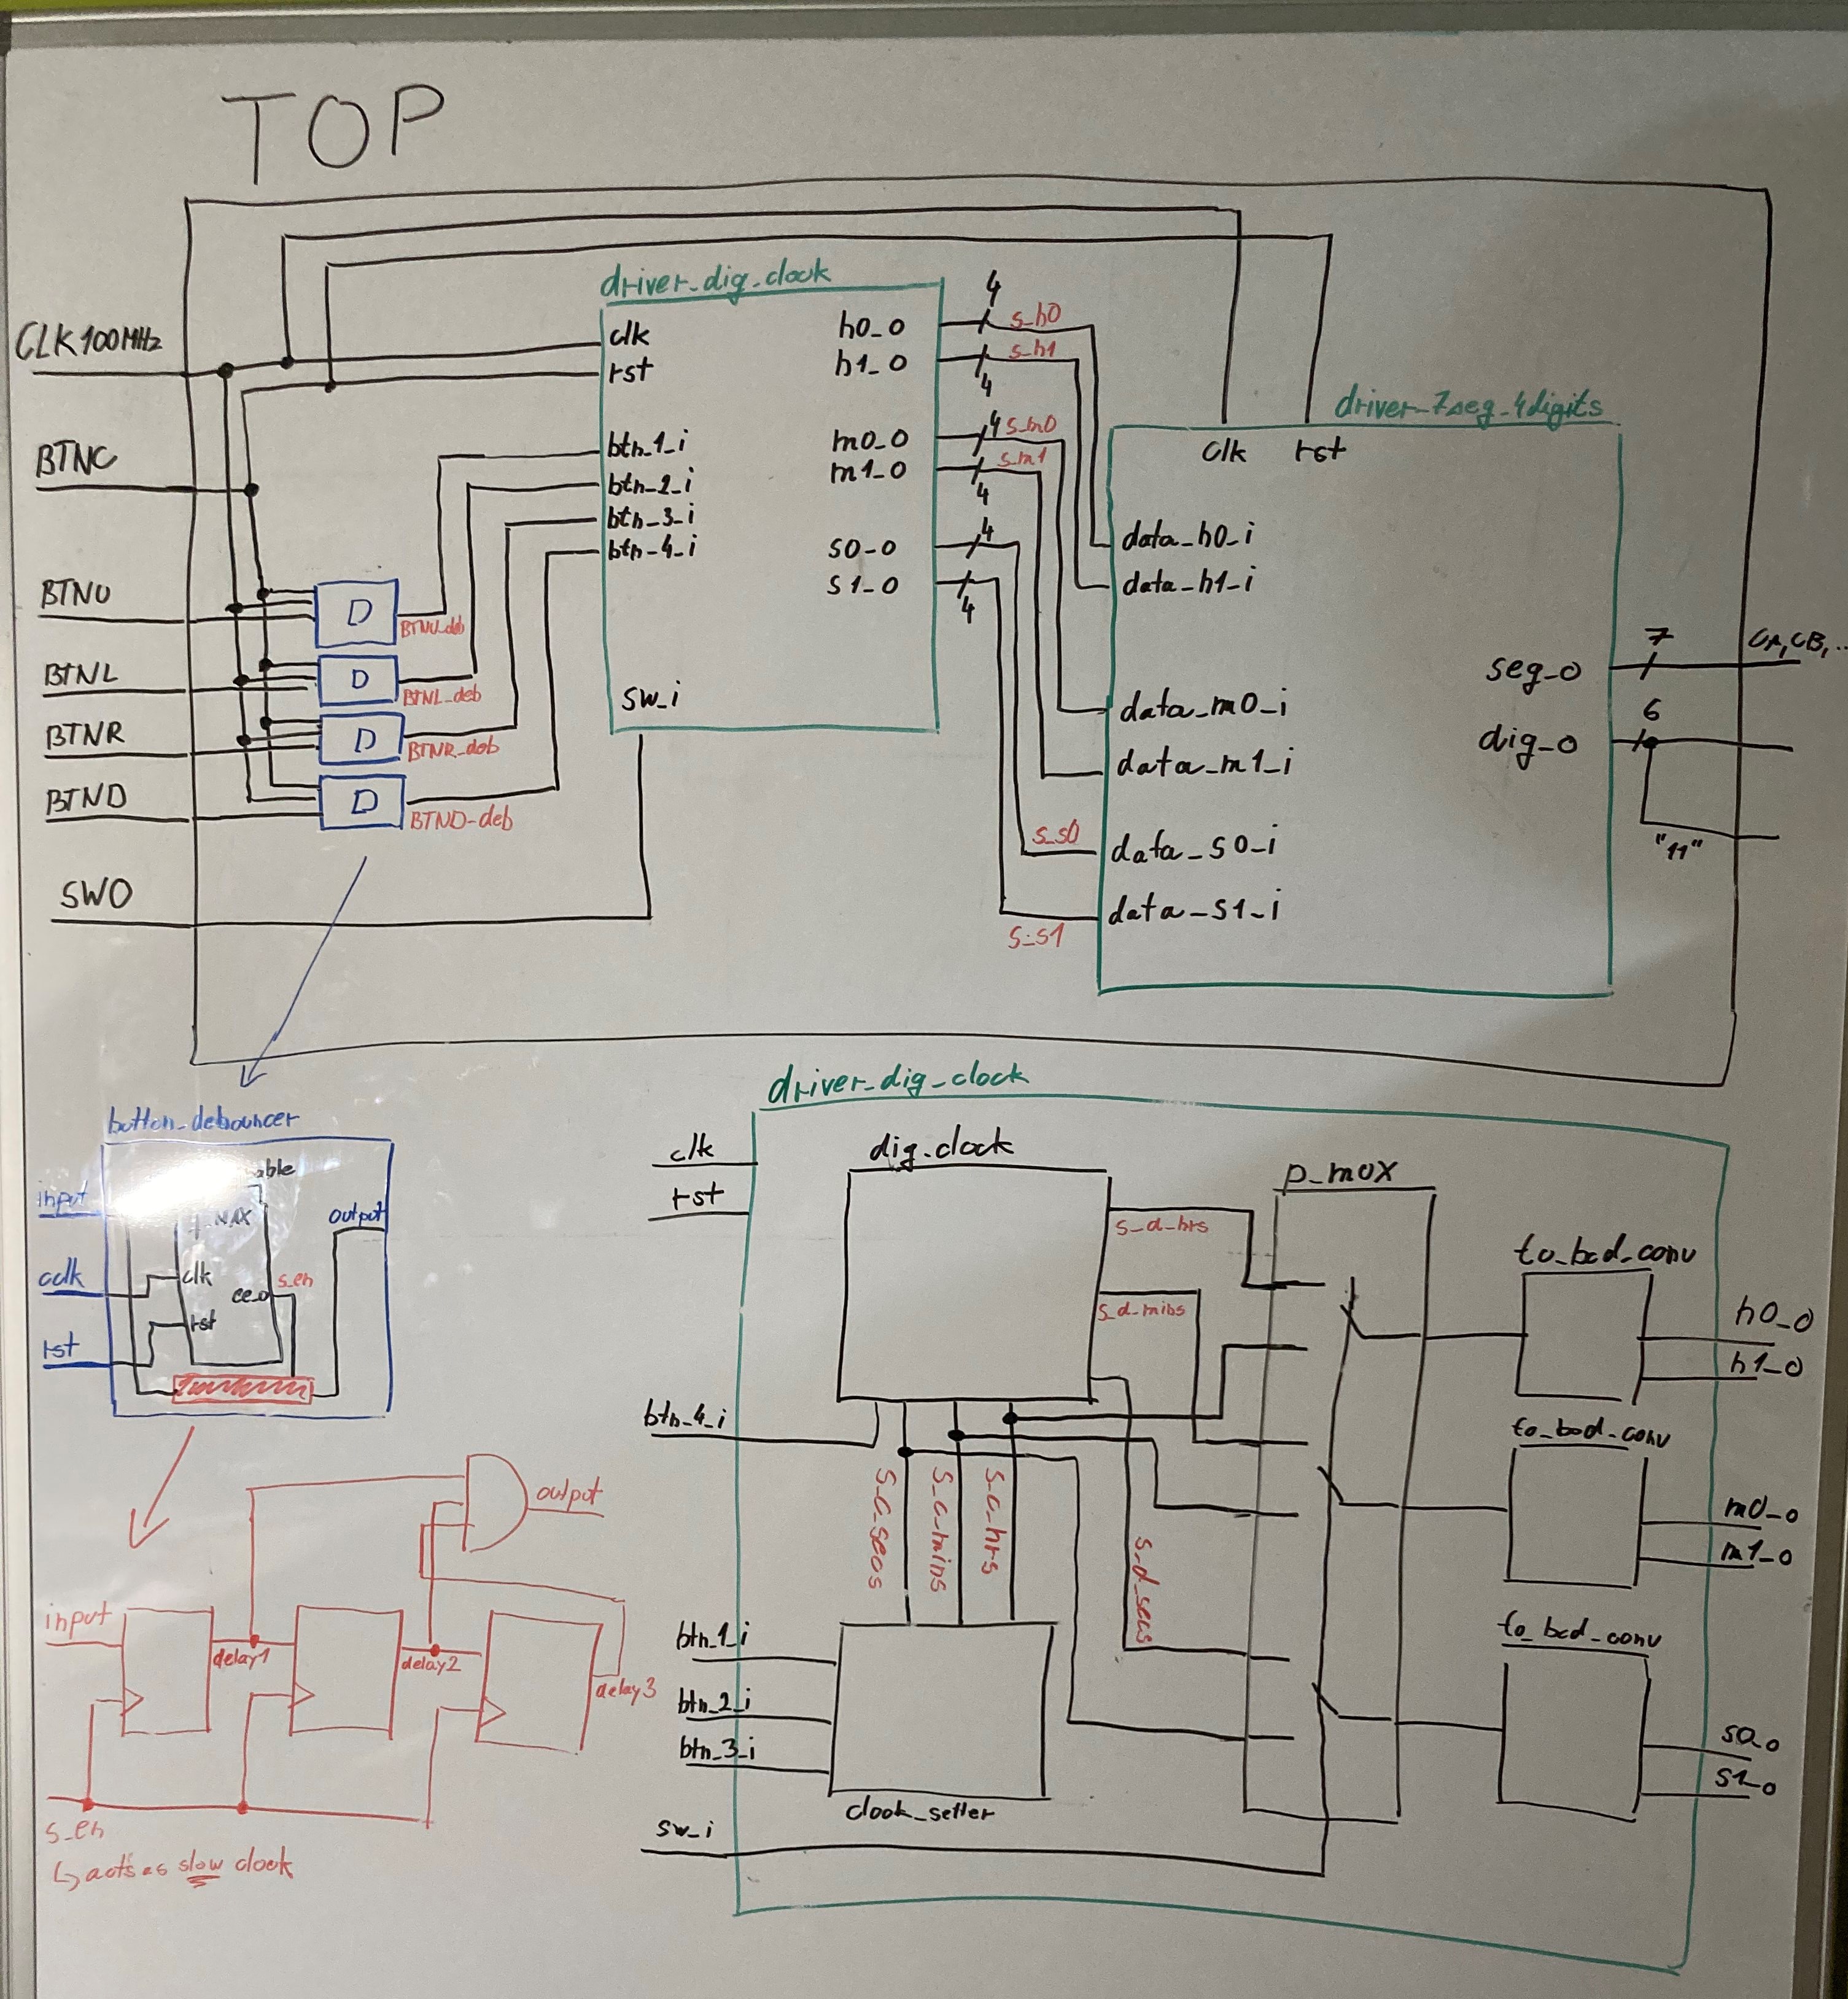 TOP
driver_dig_clock
CLK100MHz
BTNC
BTNU
BTNL
BTNR
BTND
SW0
D
BTNU_deb
D
BTNL_deb
D
BTNR_deb
D
BTND-deb
clk
rst
btn_1_i
btn_2_i
btn_3_i
btn_4_i
sw_i
h0_0
h1_0
m0_0
m1_0
s0_0
s1_0
4
s_h0
s_h1
4
4
s_m0
s_m1
4
4
4
s_s0
s_s1
driver_7seg_4digits
clk
rst
data_h0_i
data_h1_i
data_m0_i
data_m1_i
data_s0_i
data_s1_i
seg_0
dig_0
7
CA,CB,..
6
"11"
button_debouncer
input
cclk
rst
able
MAX
clk
rst
ce_o
s_en
output
output
input
delay1
delay2
delay3
s_en
↳ acts as slow clock
driver_dig_clock
clk
rst
dig_clock
p_mux
s_d_hrs
s_d_mins
btn_4_i
s_c_secs
s_c_mins
s_c_hrs
s_d_secs
btn_1_i
btn_2_i
btn_3_i
clock_setter
sw_i
to_bcd_conv
h0_0
h1_0
to_bcd_conv
m0_0
m1_0
to_bcd_conv
s0_0
s1_0